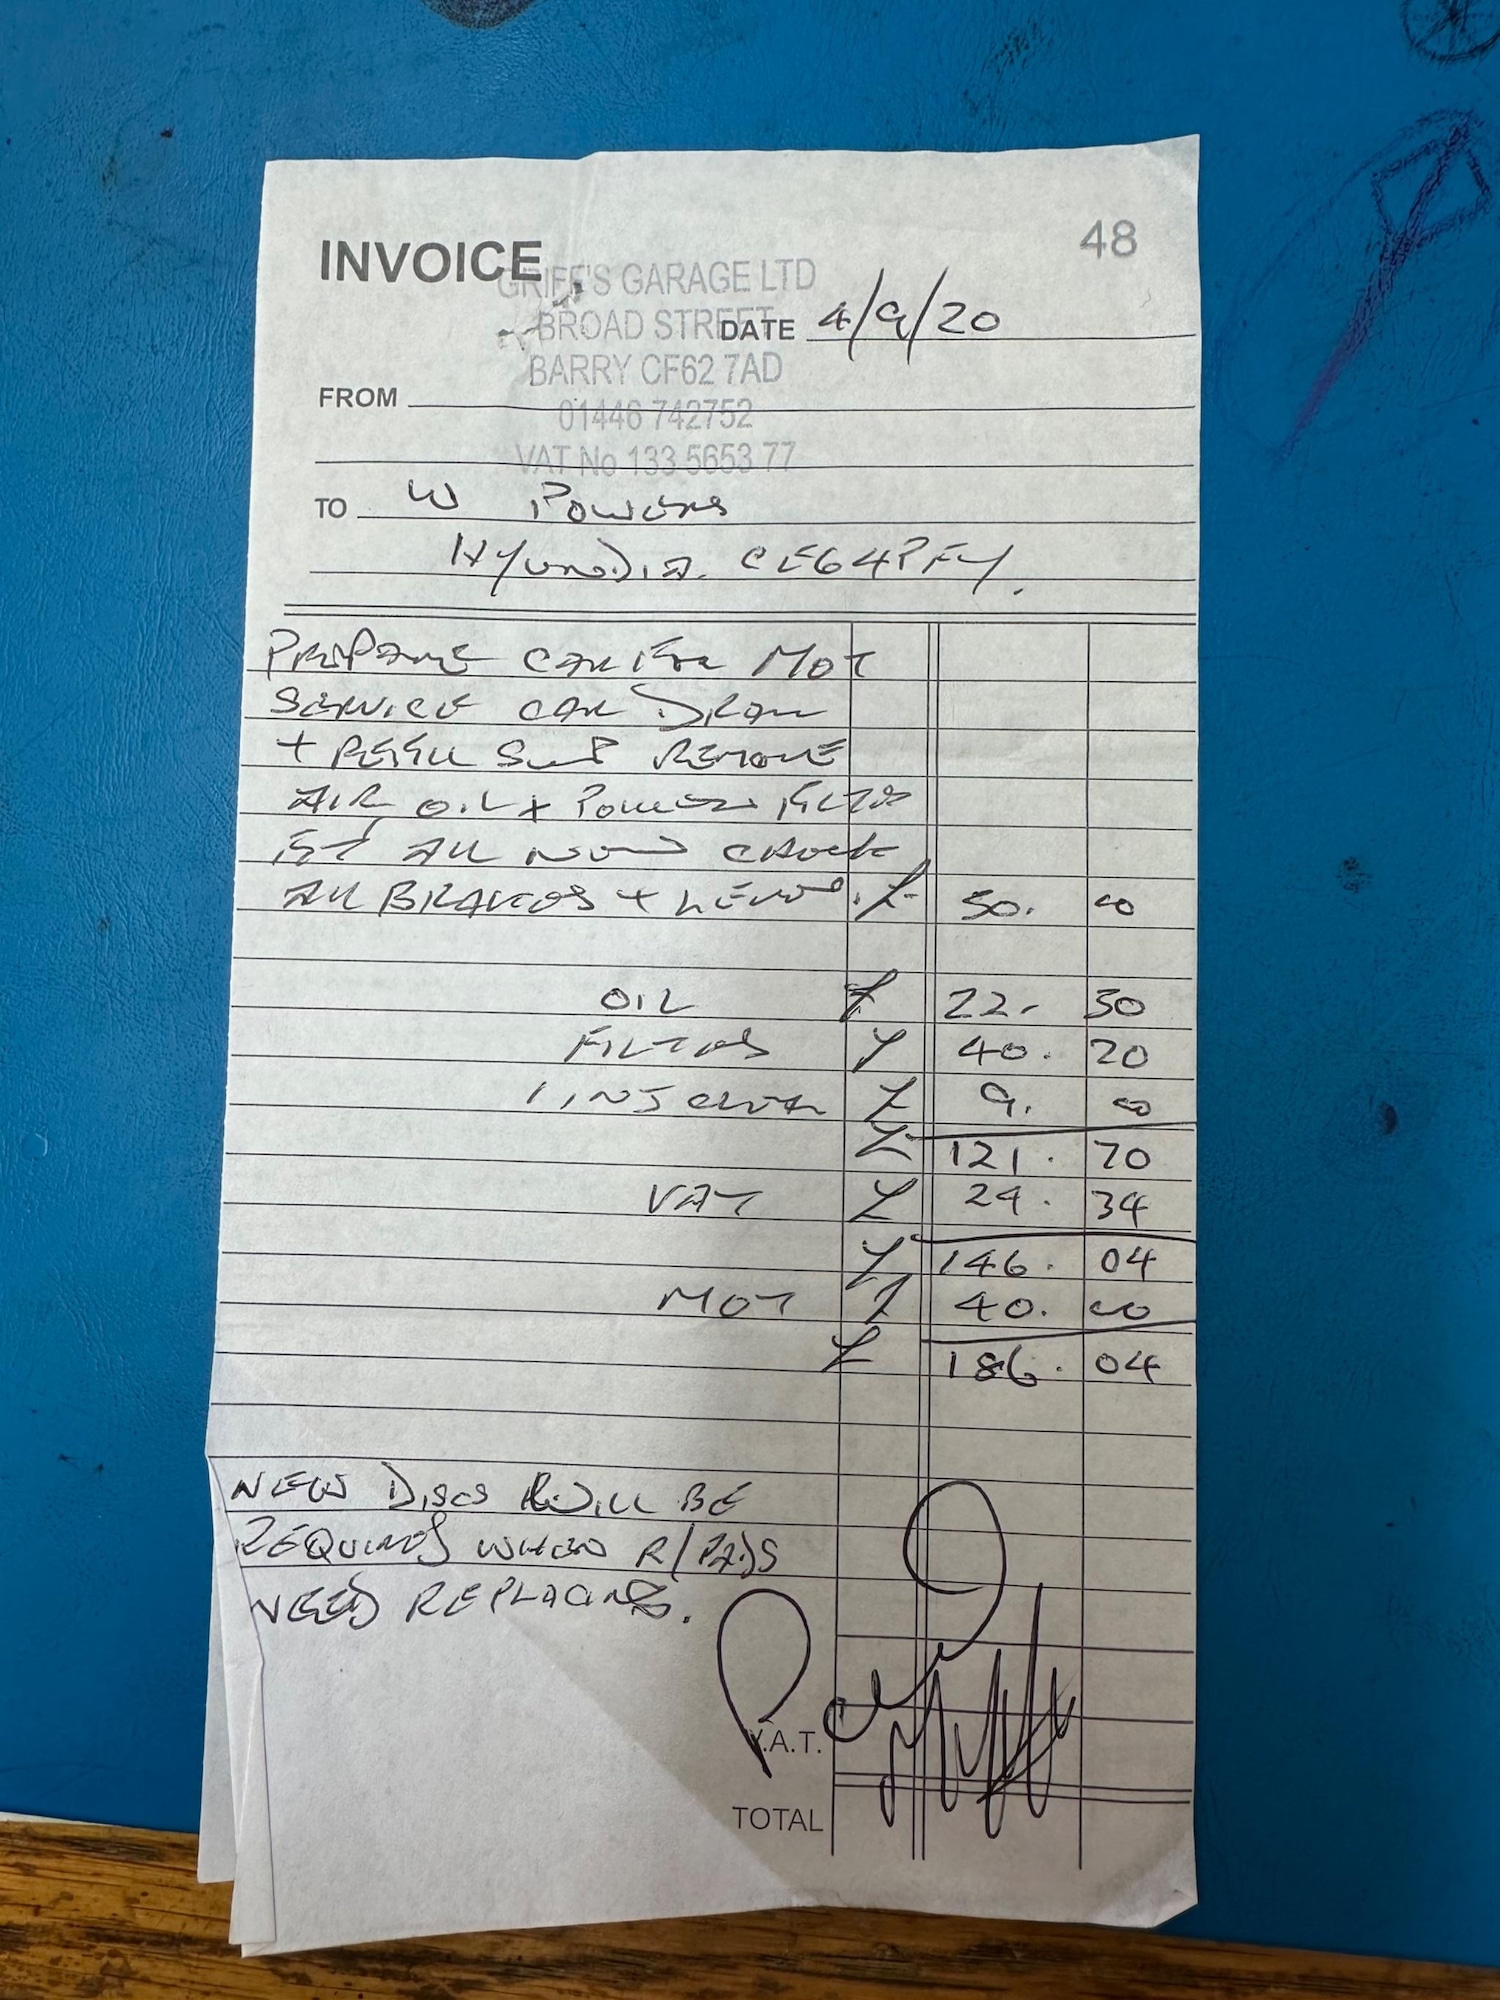 INVOICE
48
GRIFF'S GARAGE LTD
BROAD STREET
BARRY CF62 7AD
01446 742752
VAT No 133 5653 77
DATE 4/9/20
FROM
TO W Powers
HYUNDIA. CE64PFY.
PREPARE CAR FOR MOT
SERVICE CAR DRAIN
+ REFILL SUMP REMOVE
AIR OIL + POLLEN FILTERS
FIT ALL NEW CHECK
ALL BRAKES + LEVELS. £ 50. 00
OIL £ 22. 50
FILTERS £ 40. 20
1 INJ CLEANER £ 9. 00
£ 121. 70
VAT £ 24. 34
£ 146. 04
MOT £ 40. 00
£ 186. 04
NEW DISCS WILL BE
REQUIRED WHEN R/PADS
NEED REPLACING.
V.A.T.
TOTAL